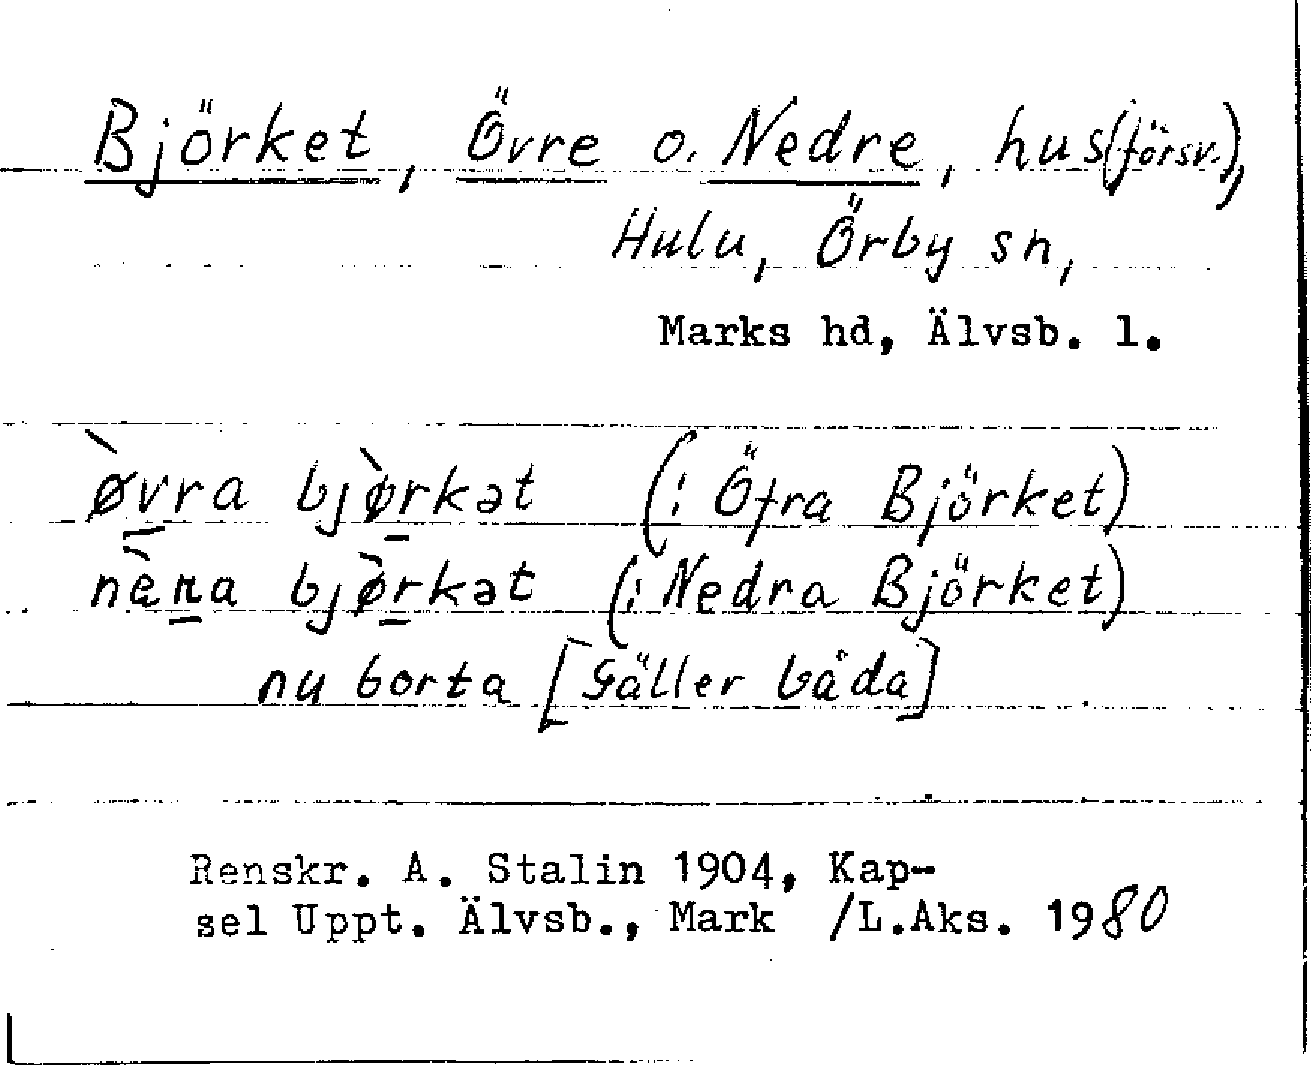 Björket, Övre o. Nedre, hus (försv.),
Hulu, Örby sn,
Marks hd, Älvsb. l.
ø̀vra bjø̀rkət (: Öfra Björket)
nèna bjø̀rkət (: Nedra Björket)
nu borta [Gäller båda]
Renskr. A. Stalin 1904, Kap-
sel Uppt. Älvsb., Mark /L.Aks. 1980